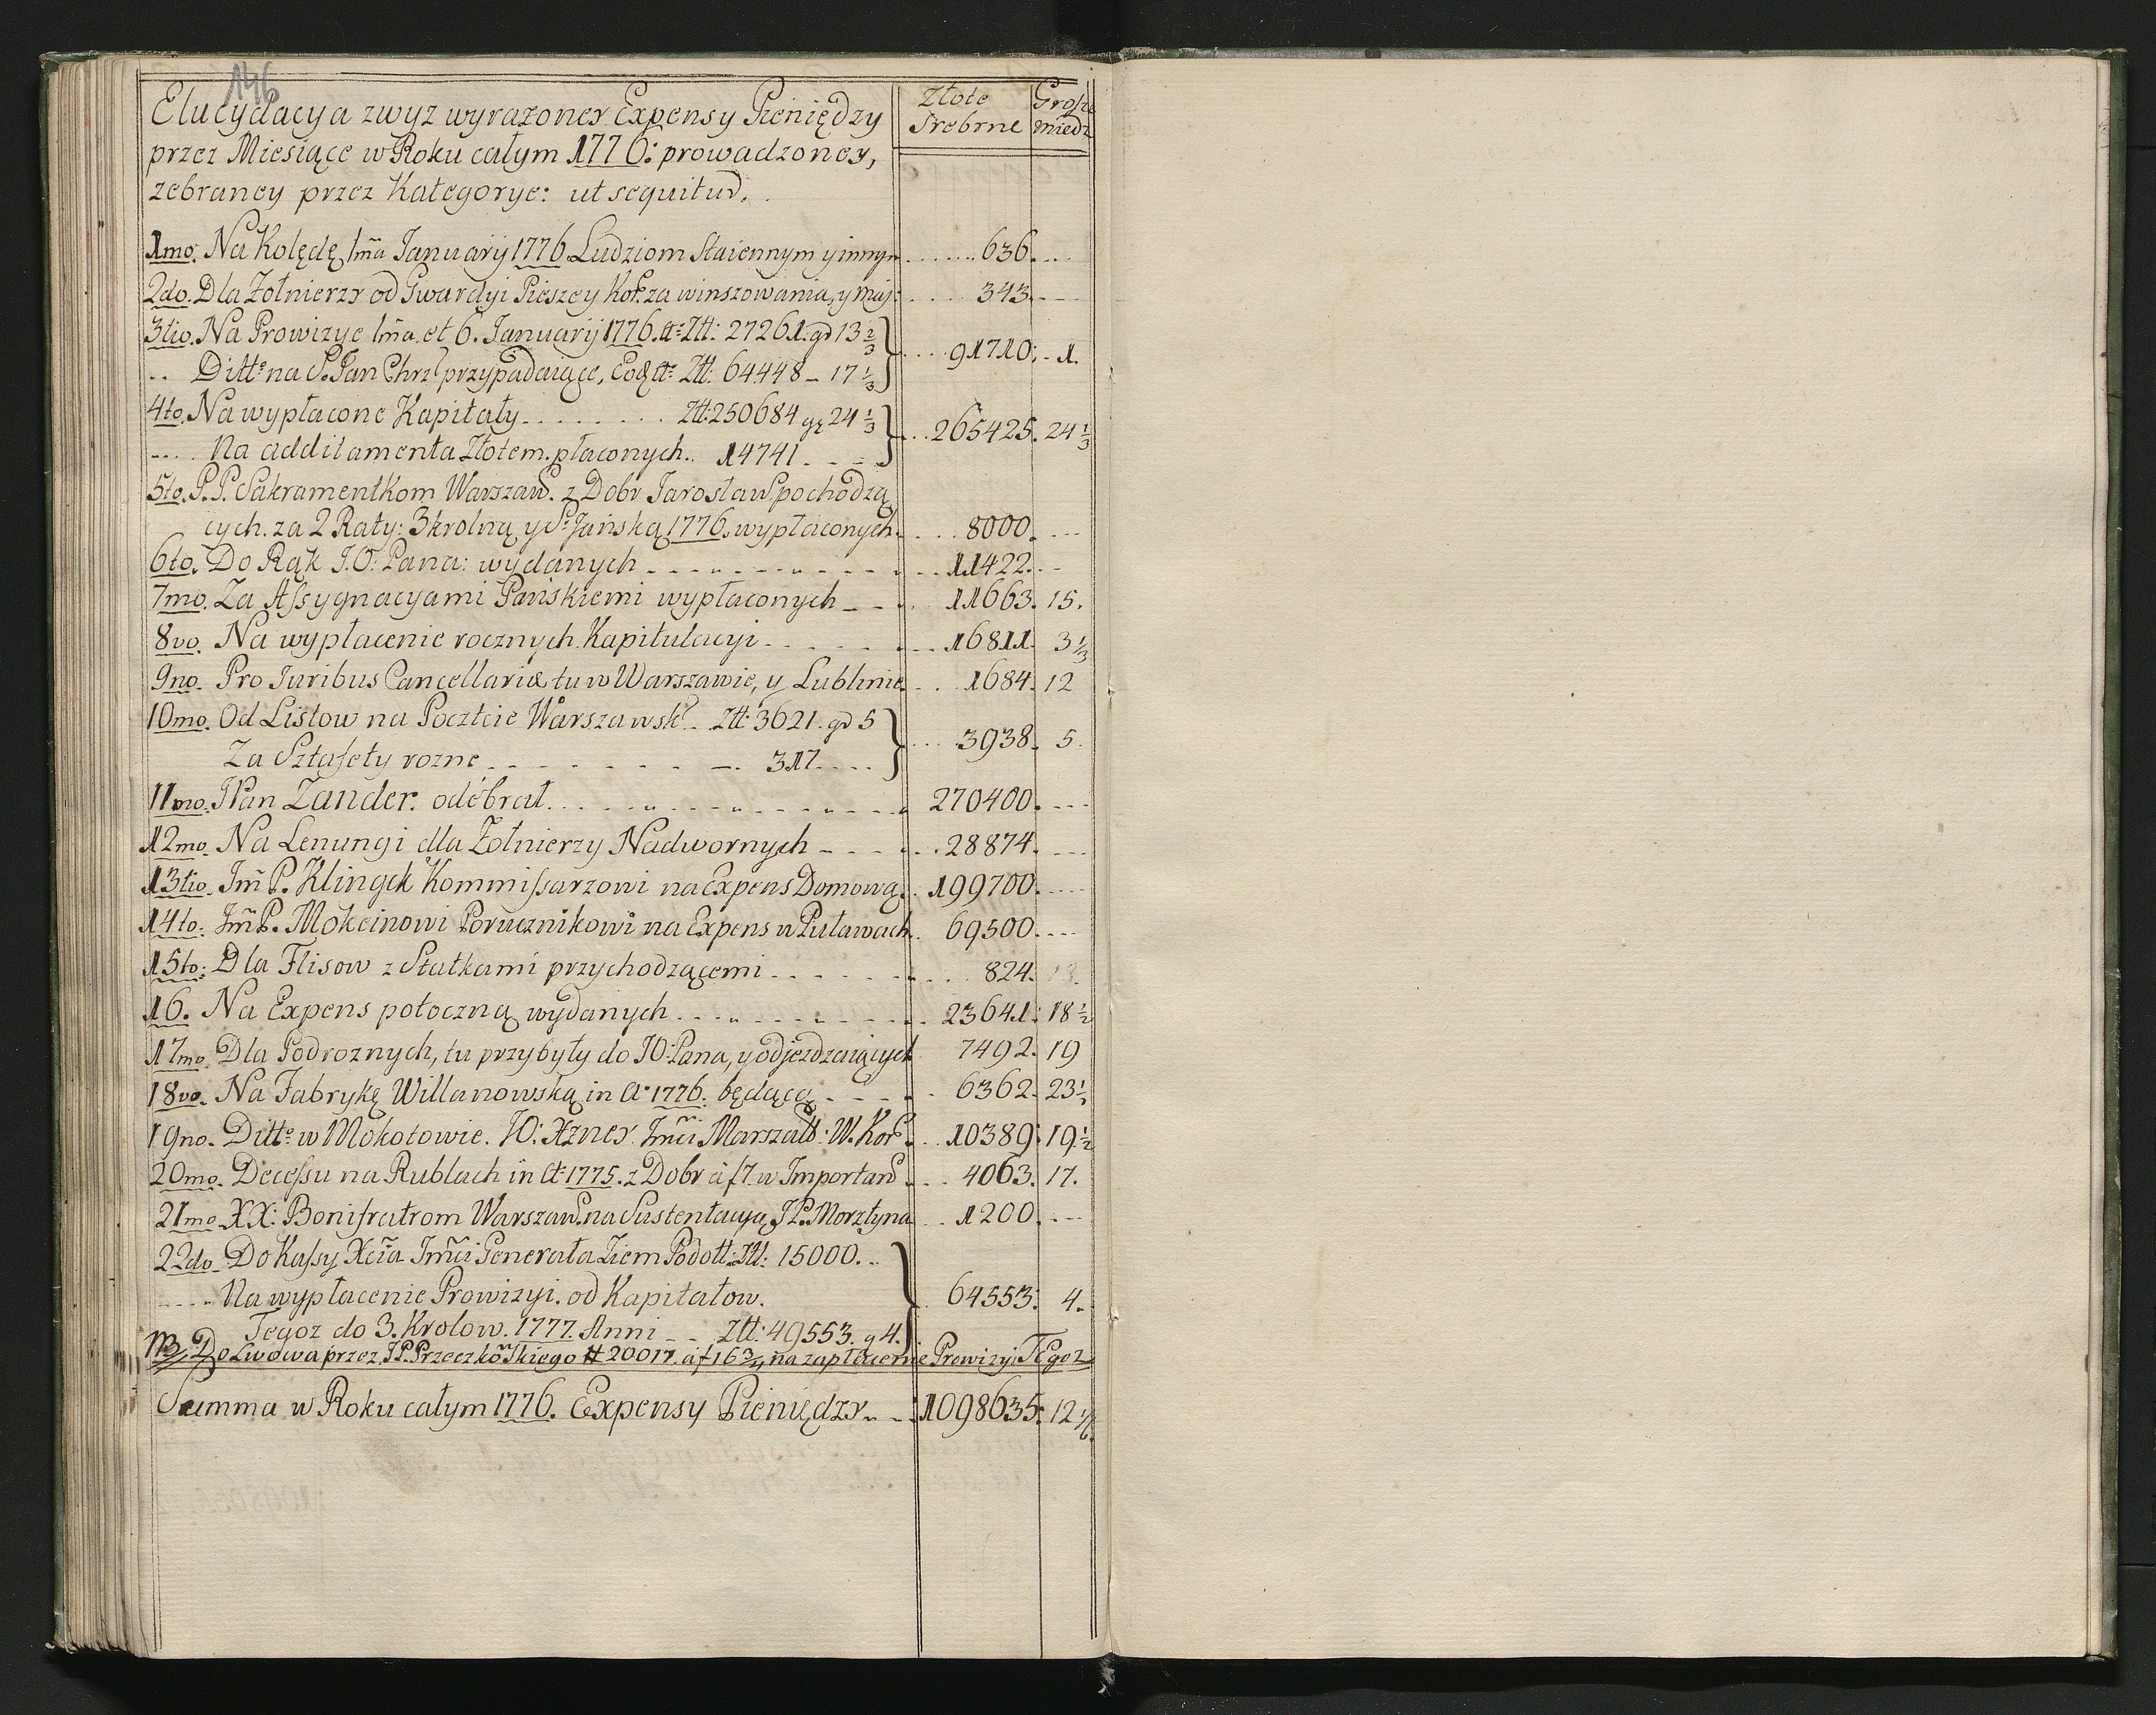 146
Elucydacya zwyz wyrazoney Expensy Pieniędzy
Złote Grosze
Srebrne miedz
przez Miesiące w Roku całym 1776: prowadzoney,
zebraney przez Kategorye: ut sequitur.
1mo. Na Kolędę 1ma Januarij 1776. Ludziom Staiennym y innym ..... 636. ...
2do. Dla Żołnierzy od Gwardyi Pieszey Kor. za winszowania, y Maj: .... 343. ---
3tio. Na Prowizye 1ma. et 6. Januarij 1776. a Ztt: 27261. gr 13 2/3
.... 91710. 1.
.. Ditto na S. Jan Chrz. przypadaiące, Eod. a: Ztt: 64448 - 17 1/3
4to. Na wypłacone Kapitały ........ Ztt: 250684 gr 24 1/3
... 265425. 24 1/3
.... Na additamenta Złotem. płaconych. 14741. ---
5to. P.P. Sakramentkom Warszaw. z Dobr Jarosław. pochodzą
cych. za 2 Raty: 3krolną, y S. Jańską 1776. wypłaconych. ... 8000. ...
6to. Do Rąk J.O: Pana: wydanych ---------- 11422. --
7mo. Za Assygnacyami Pańskiemi wypłaconych --- 11663. 15.
8vo. Na wypłacenie rocznych Kapitulacyi ------- 16811. 3 1/3
9no. Pro Juribus Cancellariæ tu w Warszawie, y Lublinie. .. 1684. 12
10mo. Od Listow na Poczcie Warszawsk. .. Ztt: 3621. gr 5
... 3938. 5.
Za Sztafety rozne -------- 317. ....
11mo. JPan Zander. odebrał ............ 270400. ---
12mo. Na Lenungi dla Żołnierzy Nadwornych ---- 28874. ---
13tio. Jm P. Klingek Kommissarzowi na Expens Domową .. 199700. ----
14to. Jm P. Mokeinowi Porucznikowi na Expens w Puławach. 69500. ---
15to: Dla Flisow z Statkami przychodzącemi ....... 824. 18.
16. Na Expens potoczną wydanych .......... 23641: 18 1/2
17mo. Dla Podroznych, tu przybyły do JO: Pana, y odjezdzaiących 7492. 19
18vo. Na Fabrykę Willanowską in Ao 1776. będącą ---- 6362. 23 1/2
19no. Ditto w Mokotowie. JO: Xzney Jmci Marszałk: W. Kor. .. 10389: 19 1/2
20mo. Decessu na Rublach in Ao 1775. z Dobr à f 7. w Importan. ... 4063. 17.
21mo. XX: Bonifratrom Warszaw. na Sustentacyą JP. Morztyna .. 1200. ...
22do. Do Kassy Xcia Jmci Generała Ziem Podoll: Ztt: 15000. ..
---- Na wypłacenie Prowizyi. od Kapitałow. 64553: 4.
Tegoz do 3. Krolow. 1777. Anni -- Ztt: 49553. g 4.
NB. Do Lwowa przez JP. Przeczkowskiego # 20017. à f 16 3/4, na zapłacenie Prowizyi Tegoz
Summa w Roku całym 1776. Expensy Pieniędzy. -- 1098635: 12 1/6